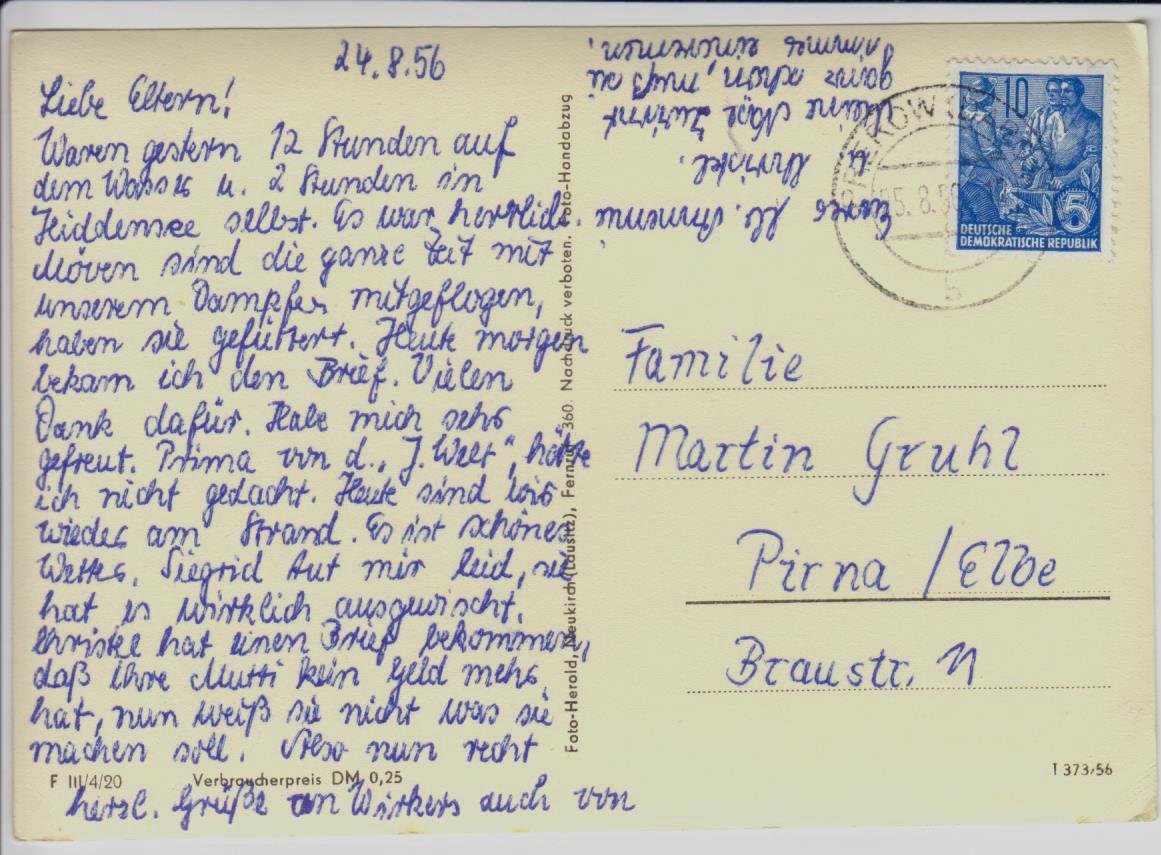 24.8.56
Liebe Eltern!
Waren gestern 12 Stunden auf
dem Wasser u. 2 Stunden in
Hiddensee selbst. Es war herrlich.
Möven sind die ganze Zeit mit
unserem Dampfer mitgeflogen,
haben sie gefüttert. Heute morgen
bekam ich den Brief. Vielen
Dank dafür. Habe mich sehr
gefreut. Prima von d. „J. Welt“, hätte
ich nicht gedacht. Heute sind wir
wieder am Strand. Es ist schönes
Wetter. Siegrid tut mir leid, sie
hat es wirklich ausgewischt.
Christel hat einen Brief bekommen,
daß ihre Mutti kein Geld mehr
hat, nun weiß sie nicht was sie
machen soll. Also nun recht
herzl. Grüße an Wirkers auch von
Eurer
u. Christel.
Meine Nase
ganz schon, muß sie
immer eincremen.
Familie
Martin Gruhl
Pirna / Elbe
Braustr. 11
10
5
DEUTSCHE
DEMOKRATISCHE REPUBLIK
5.8.5
b
Foto-Herold, Neukirch (Lausitz), Fernruf 360. Nachdruck verboten. Foto-Handabzug
F III/4/20
Verbraucherpreis DM 0,25
T 373/56